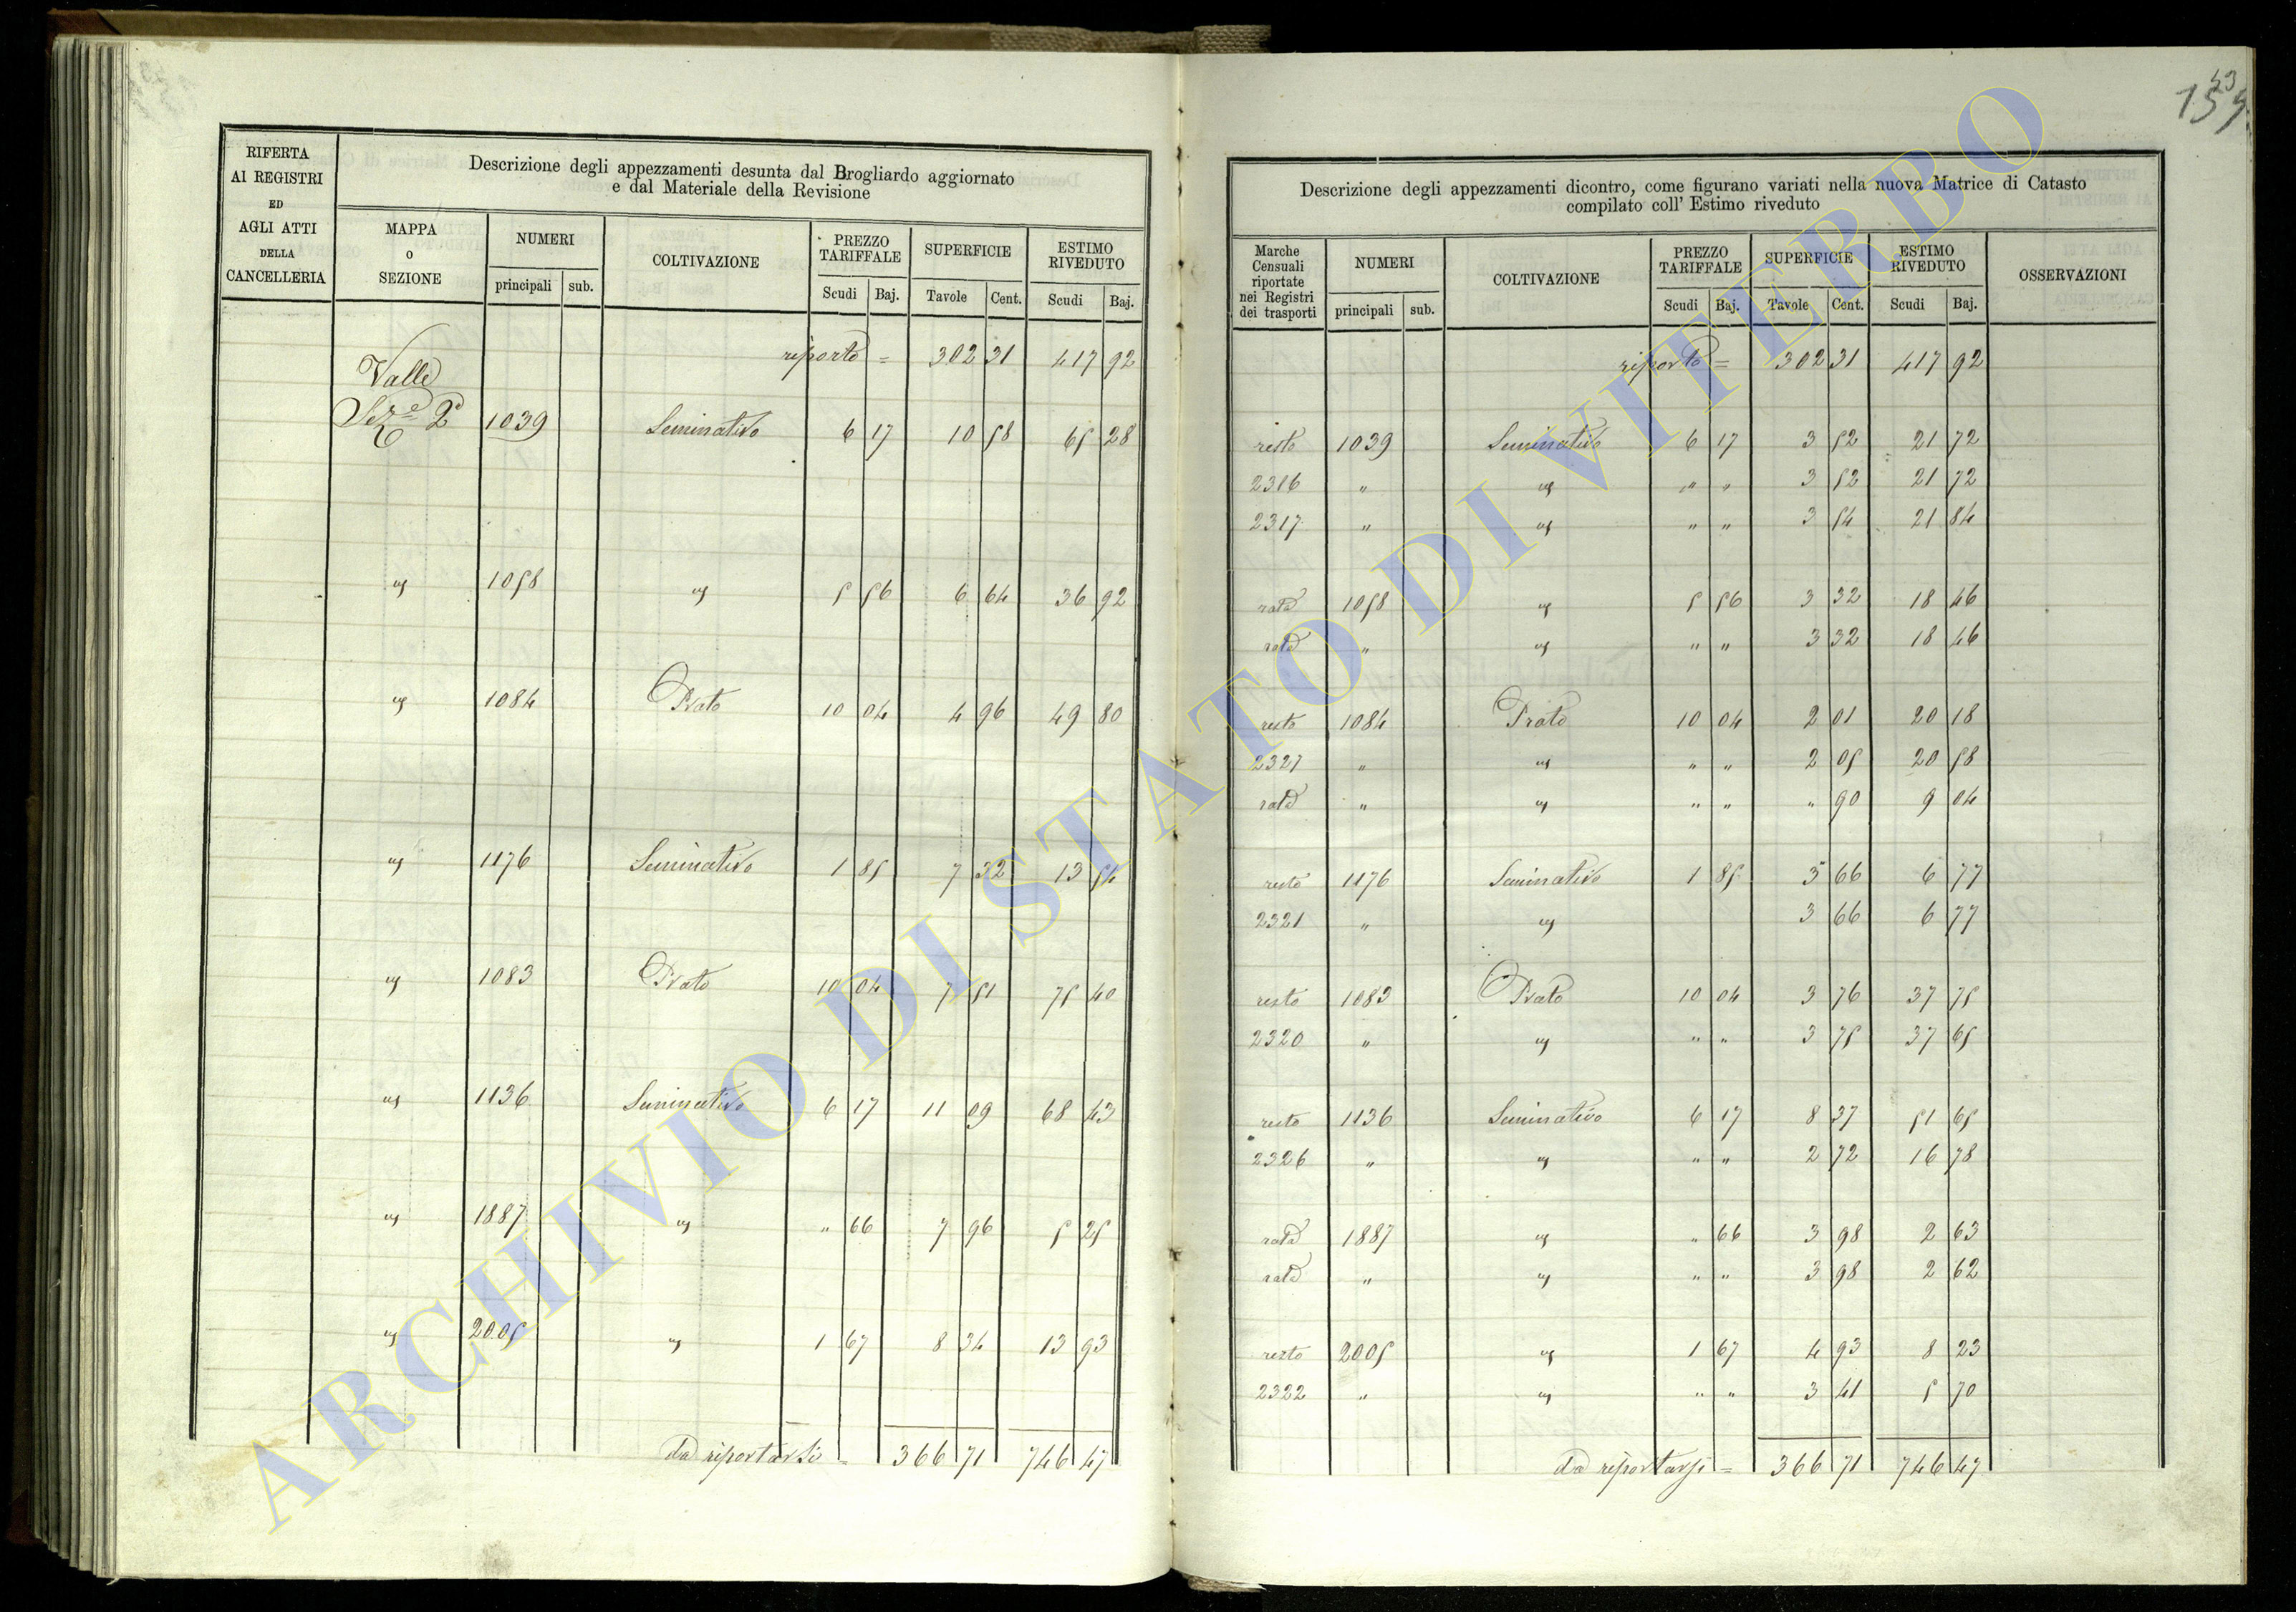 153
159
RIFERTA
AI REGISTRI
ED
AGLI ATTI
DELLA
CANCELLERIA
Descrizione degli appezzamenti desunta dal Brogliardo aggiornato
e dal Materiale della Revisione
MAPPA
o
SEZIONE
NUMERI
principali sub.
COLTIVAZIONE
PREZZO
TARIFFALE
Scudi Baj.
SUPERFICIE
Tavole Cent.
ESTIMO
RIVEDUTO
Scudi Baj.
riporto = 302 31 417 92
Valle
Seze 2a 1039 Seminativo 6 17 10 58 65 28
" 1058 " 5 56 6 64 36 92
" 1084 Prato 10 04 4 96 49 80
" 1176 Seminativo 1 85 7 32 13 54
" 1083 Prato 10 04 7 51 75 40
" 1136 Seminativo 6 17 11 09 68 43
" 1887 " " 66 7 96 5 25
" 2005 " 1 67 8 34 13 93
da riportarsi = 366 71 746 47
Descrizione degli appezzamenti dicontro, come figurano variati nella nuova Matrice di Catasto
compilato coll' Estimo riveduto
Marche
Censuali
riportate
nei Registri
dei trasporti
NUMERI
principali sub.
COLTIVAZIONE
PREZZO
TARIFFALE
Scudi Baj.
SUPERFICIE
Tavole Cent.
ESTIMO
RIVEDUTO
Scudi Baj.
OSSERVAZIONI
riporto = 302 31 417 92
resto 1039 Seminativo 6 17 3 52 21 72
2316 " " " " 3 52 21 72
2317 " " " " 3 54 21 84
rata 1058 " 5 56 3 32 18 46
rata " " " " 3 32 18 46
resto 1084 Prato 10 04 2 01 20 18
2327 " " " " 2 05 20 58
rata " " " " " 90 9 04
resto 1176 Seminativo 1 85 3 66 6 77
2321 " " 3 66 6 77
resto 1083 Prato 10 04 3 76 37 75
2320 " " " " 3 75 37 65
resto 1136 Seminativo 6 17 8 37 51 65
2326 " " " " 2 72 16 78
rata 1887 " " 66 3 98 2 63
rata " " " " 3 98 2 62
resto 2005 " 1 67 4 93 8 23
2322 " " " " 3 41 5 70
da riportarsi = 366 71 746 47
ARCHIVIO DI STATO DI VITERBO